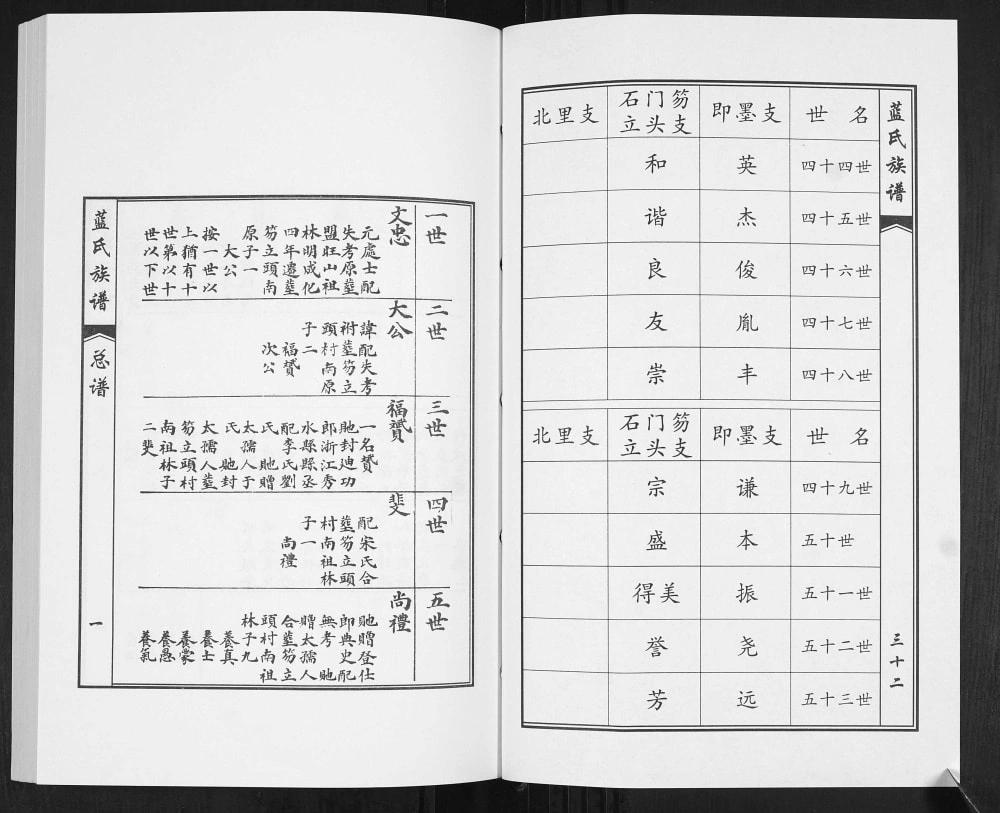 蓝氏族谱
三十二
世 名 即墨支 石门笏立头支 北里支
四十四世 英 和
四十五世 杰 谐
四十六世 俊 良
四十七世 胤 友
四十八世 丰 崇
世 名 即墨支 石门笏立头支 北里支
四十九世 谦 宗
五十世 本 盛
五十一世 振 得美
五十二世 尧 誉
五十三世 远 芳
一世
文忠
元處士配
失考原塟
盟旺山祖
林明成化
四年遷塟
笏立頭南
原子一
大公
按一世以
上猶有十
世第以十
世以下世
二世
大公
諱配失考
祔塟笏立
頭村南原
子二
福贇
次公
三世
福贇
一名贇
貤封迪功
郎浙江秀
水縣縣丞
配李氏劉
氏 貤贈
太孺人于
氏 貤封
太孺人塟
笏立頭村
南祖林子
二斐
四世
斐
配宋氏合
塟笏立頭
村南祖林
子一
尚禮
五世
尚禮
貤贈登仕
即典史配
無考 貤
贈太孺人
合塟笏立
頭村南祖
林子九
養真
養士
養蒙
養愚
養氣
蓝氏族谱
总谱
一